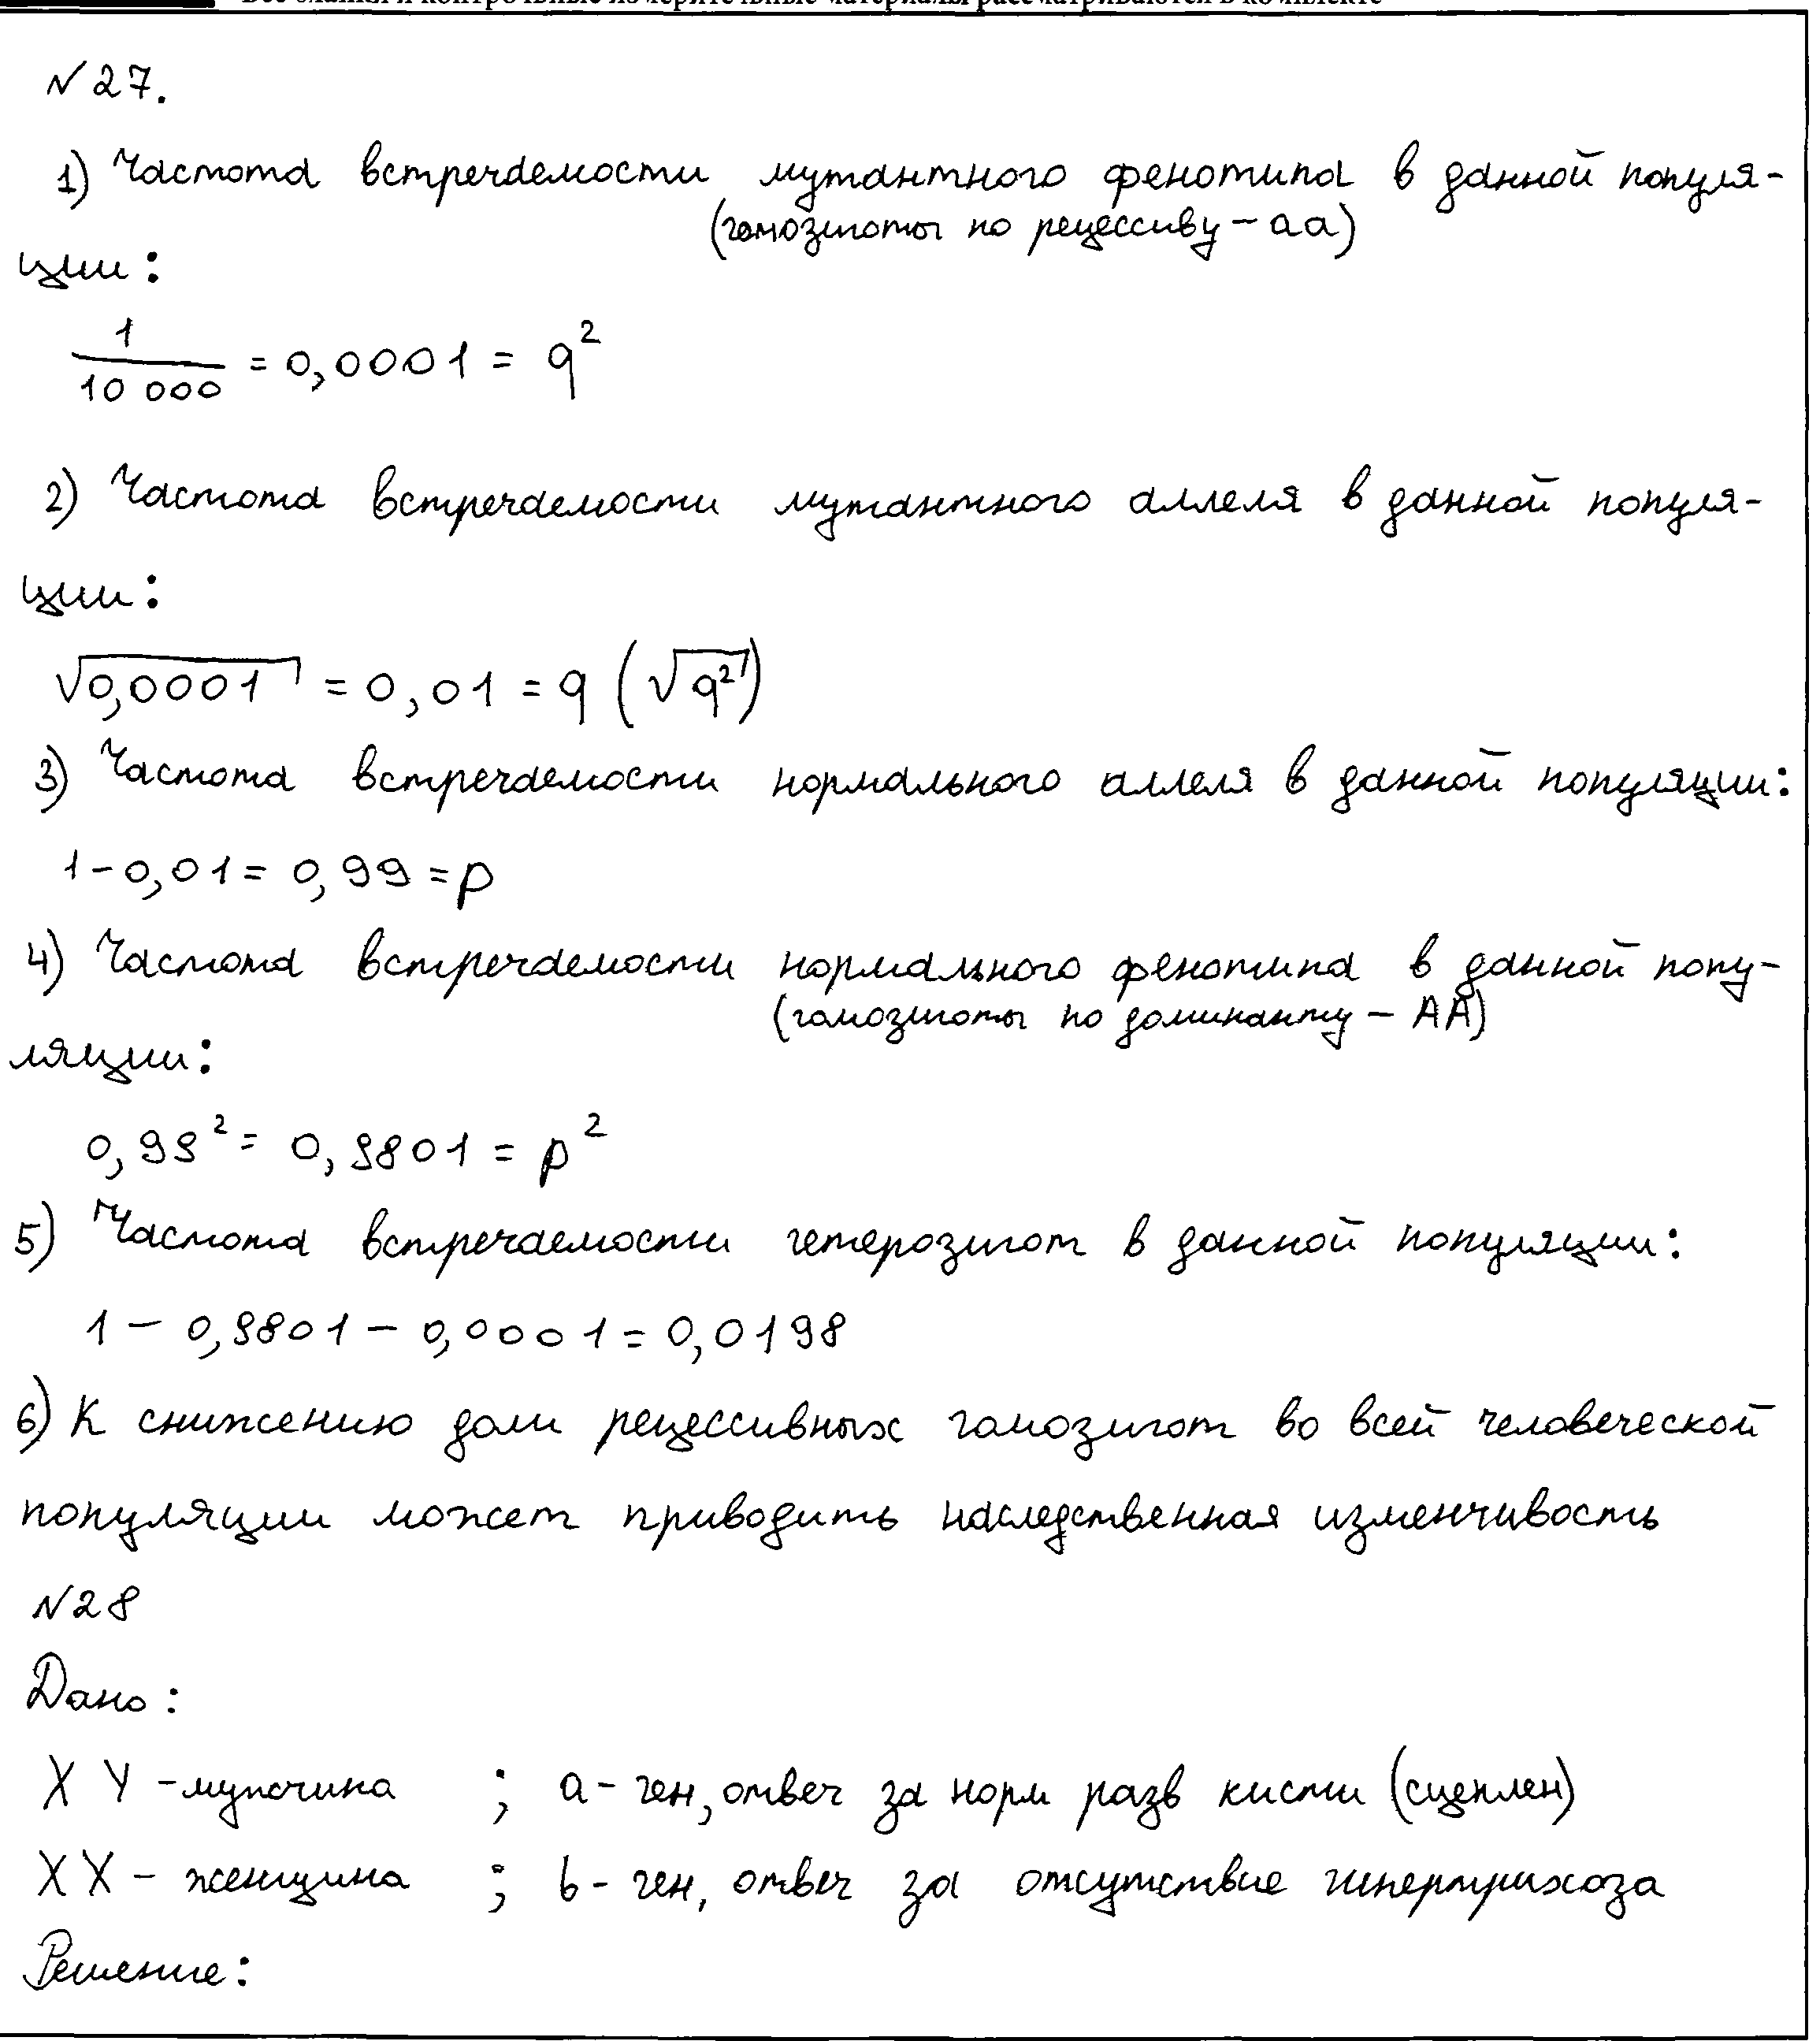 Все бланки и контрольные измерительные материалы рассматриваются в комплекте
№ 27.
1) Частота встречаемости мутантного фенотипа в данной популя-
(гомозиготы по рецессиву - аа)
ции:
1/10 000 = 0,0001 = q²
2) Частота встречаемости мутантного аллеля в данной популя-
ции:
√0,0001 = 0,01 = q (√q²)
3) Частота встречаемости нормального аллеля в данной популяции:
1 - 0,01 = 0,99 = p
4) Частота встречаемости нормального фенотипа в данной попу-
(гомозиготы по доминанту - АА)
ляции:
0,99² = 0,9801 = p²
5) Частота встречаемости гетерозигот в данной популяции:
1 - 0,9801 - 0,0001 = 0,0198
6) К снижению доли рецессивных гомозигот во всей человеческой
популяции может приводить наследственная изменчивость
№ 28
Дано:
X Y - мужчина ; а - ген, отвеч за норм разв кисти (сцеплен)
X X - женщина ; b - ген, отвеч за отсутствие гипертрихоза
Решение: